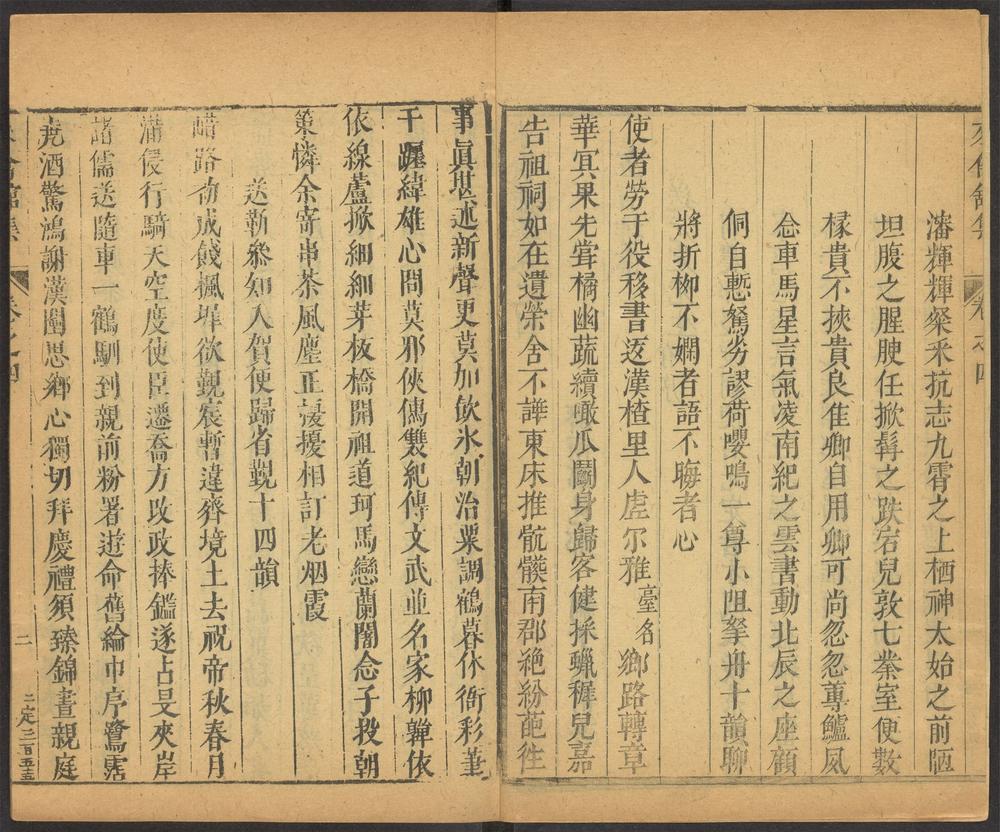 卷之四
瀋輝輝粲釆抗志九霄之上栖神太始之前陋
坦腹之腥腴任掀髯之跌宕兒敦七桊室便數
椽貴不挾貴良隹卿自用卿可尚忽忽蓴鱸凤
念車馬星言氣凌南紀之雲書動北辰之座顧
侗自慙駑劣謬荷嚶鳴一尊小阻拏舟十韻聊
將折栁不嫻者語不晦者心
使者勞于役移書返漢楂里人虗尔雅臺名鄉路轉章
華冥果先甞橘幽蔬續噉瓜鬬身歸客健採蠟穉兒嘉
告祖祠如在遺榮舍不譁東床推骯髒南郡絶紛葩徃
事眞堪述新聲更莫加飲氷朝治粟調鶴暮休衙彩筆
干躔緯雄心問莫邪俠傳雙紀傳文武並名家柳韡依
依線蘆掀細細芽板橋開祖道珂馬戀蘭闍念子投朝
策憐余寄串茶風塵正擾擾相訂老烟霞
送靳叅知入賀便歸省覲十四韻
錯路初成餞楓墀欲覲宸暫違齊境土去祝帝秋春月
滿侵行騎天空度使臣遷喬方改政捧鑑遂占旻夾岸
諸儒送隨車一鶴馴到親前粉署遊命舊綸巾序鷺霑
尭酒驚鴻謝漢闉思鄉心獨切拜慶禮須臻錦晝親庭
卷之四
二
二定三百五五